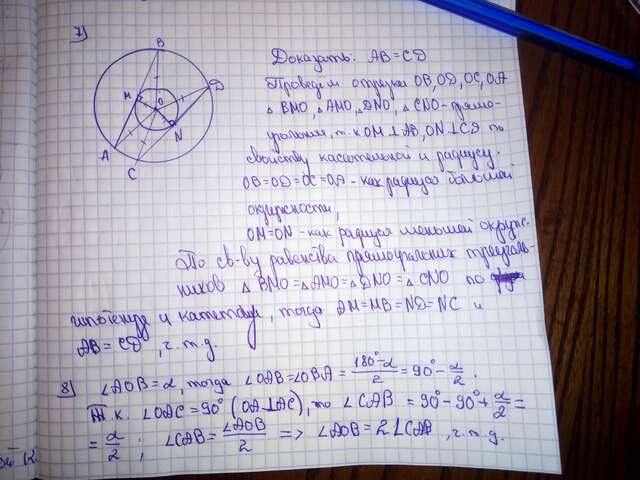 7)
A
M
B
C
O
N
D
Доказать: AB = CD
Проведем отрезки OB, OD, OC, OA
△BMO, △AMO, △DNO, △CNO - прямо-
угольные т.к OM⊥AB, ON⊥CD по
свойству касательной и радиуса;
OB=OD=OC=OA - как радиусы большей
окружности,
OM=ON - как радиусы меньшей окруж-
ности
По св-ву равенства прямоугольных треуголь-
ников △BMO=△AMO=△DNO=△CNO по
гипотенузе и катету, тогда AM=MB=ND=NC и
AB=CD, ч.т.д.
8)
∠AOB=α тогда ∠OAB=∠OBA = 180°-α/2 = 90° - α/2;
Т.к. ∠OAC=90° (OA⊥AC), то ∠CAB = 90° - 90° + α/2 =
= α/2; ∠CAB = ∠AOB/2 => ∠AOB = 2∠CAB, ч.т.д.